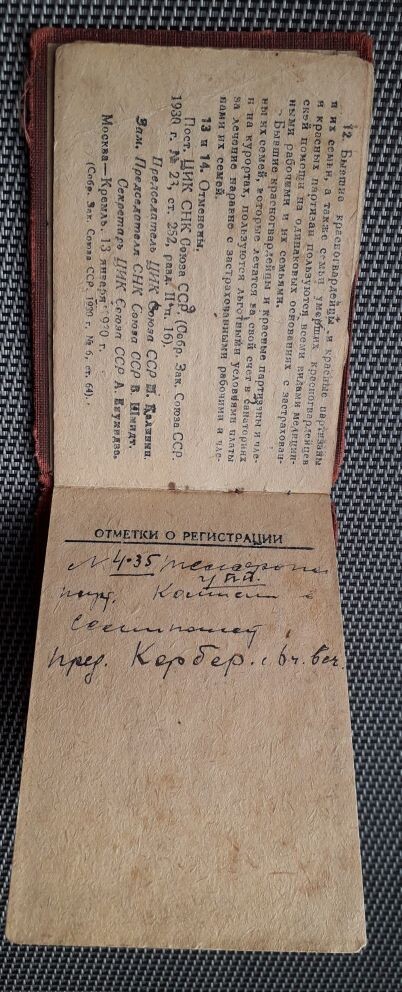 12 Бывшие красногвардейцы и красные партизаны
и их семьи, а также семьи умерших красногвардейцев
и красных партизан пользуются всеми видами медицин-
ской помощи на одинаковых основаниях с застрахован-
ными рабочими и их семьями.
Бывшие красногвардейцы и красные партизаны и чле-
ны их семей, которые лечатся за свой счет в санаториях
и на курортах, пользуются льготными условиями платы
за лечение наравне с застрахованными рабочими и чле-
нами их семей.
13 и 14. Отменены.
Пост. ЦИК СНК Союза ССР, (Собр. Зак. Союза ССР.
1930 г. № 23, ст. 252, разд. II п. 16).
Председатель ЦИК Союза ССР М. Калинин.
Зам. Председателя СНК Союза ССР В. Шмидт.
Секретарь ЦИК Союза ССР А. Енукидзе.
Москва—Кремль, 13 января 1930 г.
(Собр. Зак. Союза ССР, 1930 г. № 6, ст. 64).
ОТМЕТКИ О РЕГИСТРАЦИИ
N 4-35
пред. Кербер. с 6ч. веч.